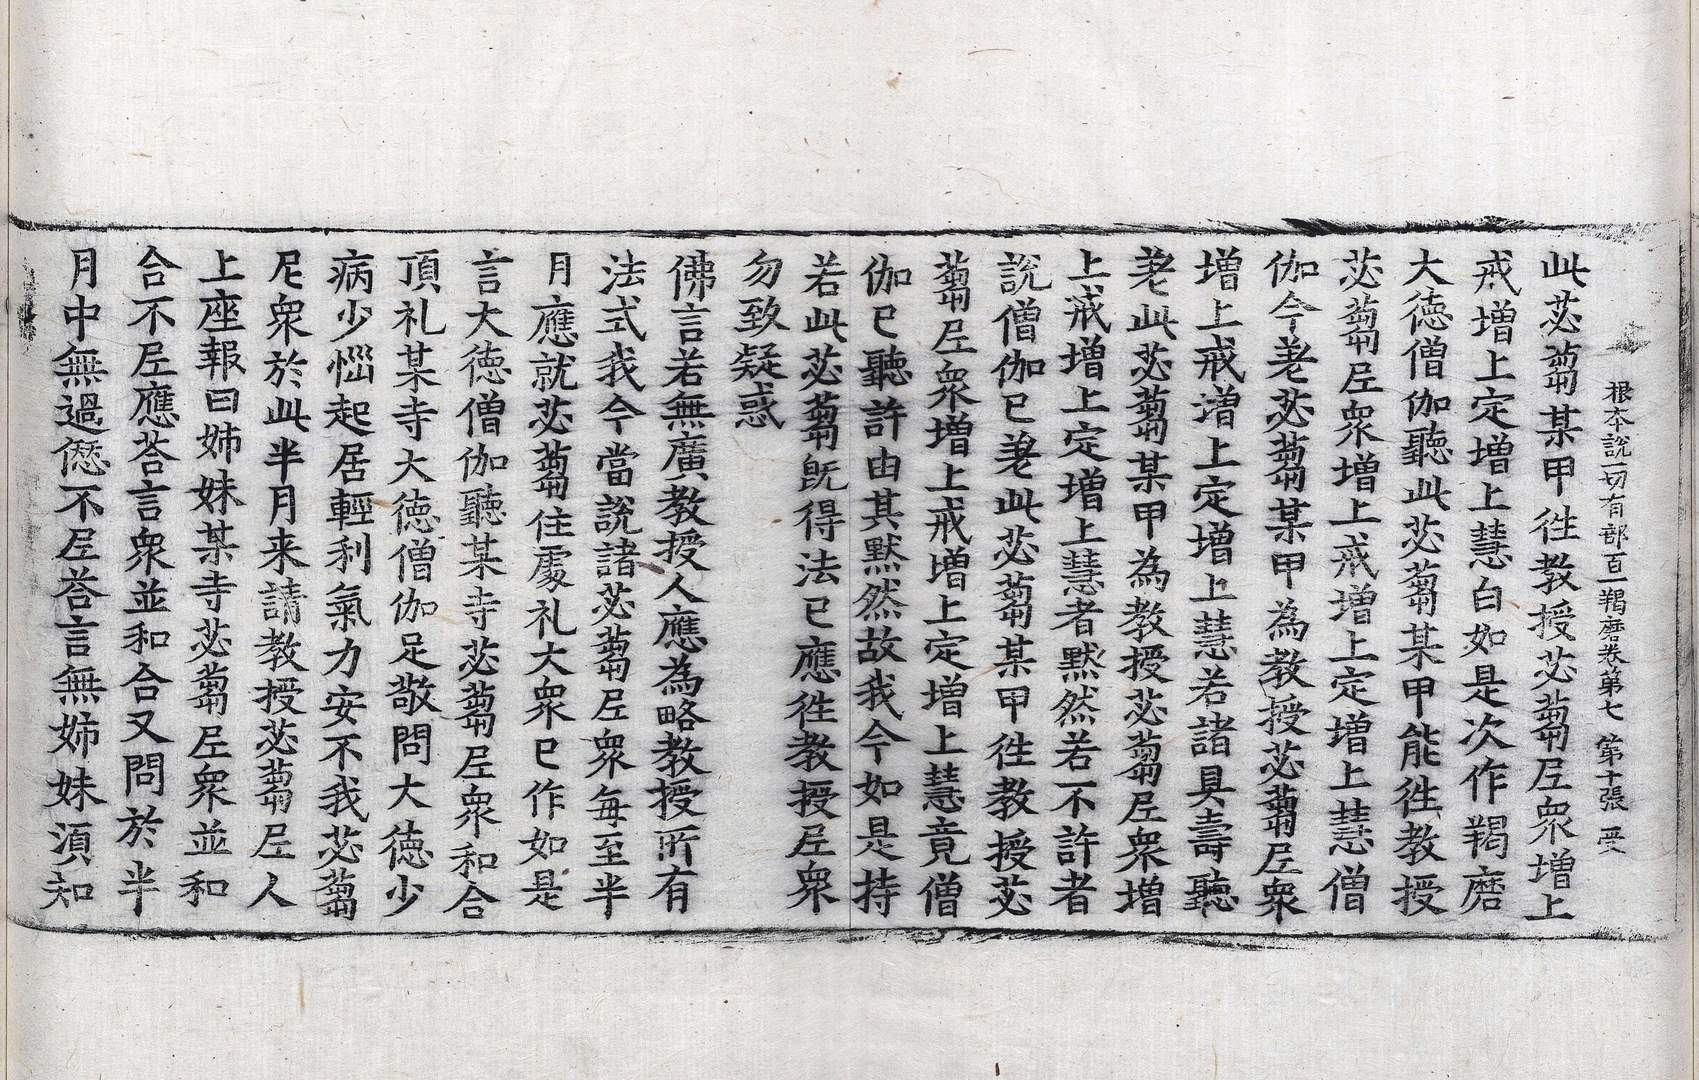 根本說一切有部百一羯磨卷第七 第十張 受
此苾蒭某甲徃教授苾蒭尼衆增上
戒增上定增上慧白如是次作羯磨
大徳僧伽聽此苾蒭某甲能徃教授
苾蒭尼衆增上戒增上定增上慧僧
伽今差苾蒭某甲為教授苾蒭尼衆
增上戒增上定增上慧若諸具壽聽
差此苾蒭某甲為教授苾蒭尼衆增
上戒增上定增上慧者默然若不許者
說僧伽已差此苾蒭某甲徃教授苾
蒭尼衆增上戒增上定增上慧竟僧
伽已聽許由其默然故我今如是持
若此苾蒭旣得法已應徃教授尼衆
勿致疑惑
佛言若無廣教授人應為略教授所有
法式我今當說諸苾蒭尼衆每至半
月應就苾蒭住處礼大衆已作如是
言大徳僧伽聽某寺苾蒭尼衆和合
頂礼某寺大徳僧伽足敬問大徳少
病少惱起居輕利氣力安不我苾蒭
尼衆於此半月来請教授苾蒭尼人
上座報曰姊妹某寺苾蒭尼衆並和
合不尼應荅言衆並和合又問於半
月中無過𠎝不尼荅言無姊妹湏知